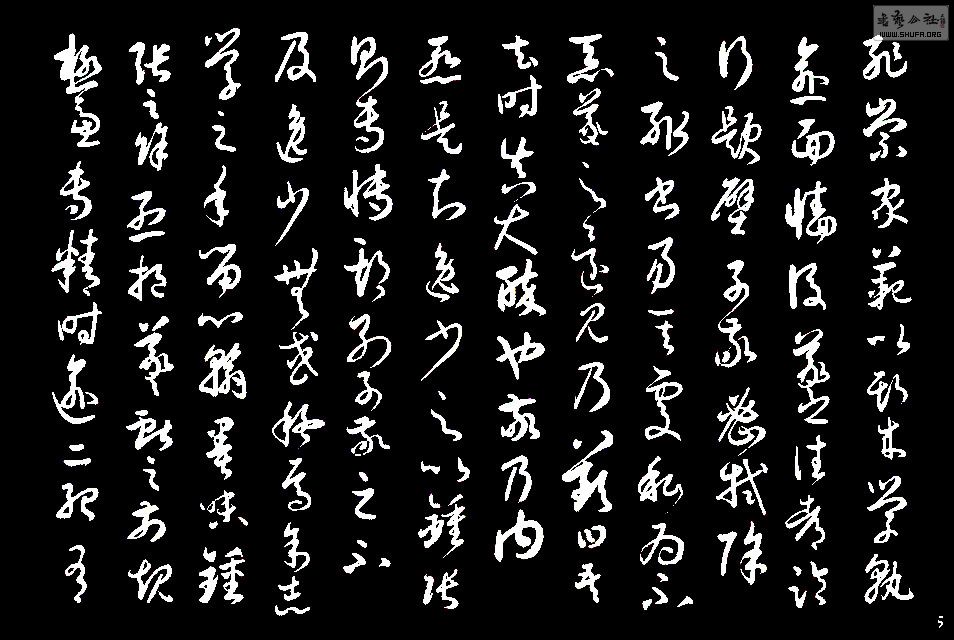 恥崇家範以斯成學孰
愈面牆後羲之往都臨
行題壁子敬密拭除
之輒書易其處私為不
惡羲之還見乃歎曰吾
去時真大醉也敬乃內
慙是知逸少之比鍾張
則專博斯別子敬之不
及逸少無或疑焉余志
學之年留心翰墨味鍾
張之餘烈挹羲獻之前規
極慮專精時逾二紀有
書藝公社
WWW.SHUFA.ORG
5